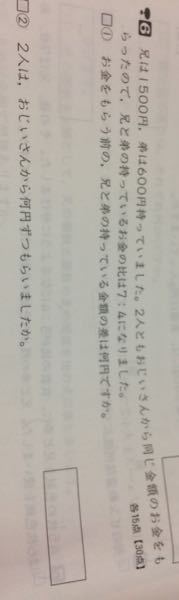 6 兄は1500円,弟は600円持っていました。2人ともおじいさんから同じ金額のお金をも
らったので,兄と弟の持っているお金の比は7:4になりました。
各15点【30点】
□① お金をもらう前の,兄と弟の持っている金額の差は何円ですか。
□② 2人は,おじいさんから何円ずつもらいましたか。